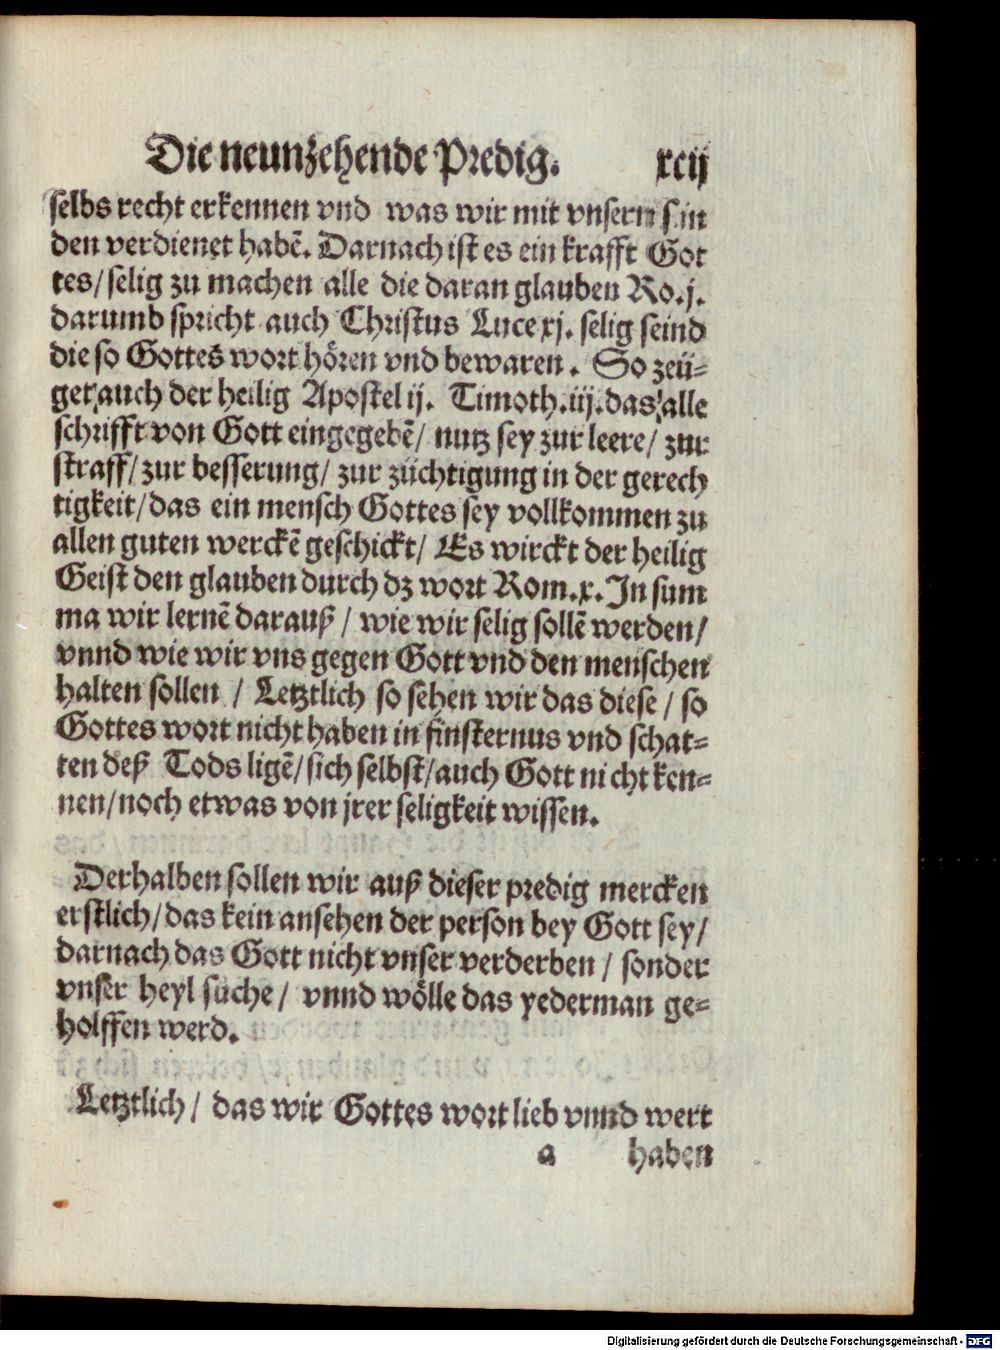 Die neunzehende Predig. xcij
selbs recht erkennen vnd was wir mit vnsern sin
den verdienet habẽ. Darnach ist es ein krafft Got
tes/selig zu machen alle die daran glauben Ro.j.
darumb spricht auch Christus Luce xj. selig seind
die so Gottes wort hören vnd bewaren. So zeü-
get auch der heilig Apostel ij. Timoth.iij.das alle
schrifft von Gott eingegebẽ/ nutz sey zur leere/ zur
straff/zur besserung/ zur züchtigung in der gerech
tigkeit/das ein mensch Gottes sey vollkommen zu
allen guten werckẽ geschickt/ Es wirckt der heilig
Geist den glauben durch dz wort Rom.x. In sum
ma wir lernẽ darauß / wie wir selig sollẽ werden/
vnnd wie wir vns gegen Gott vnd den menschen
halten sollen / Letztlich so sehen wir das diese / so
Gottes wort nicht haben in finsternus vnd schat-
ten deß Tods ligẽ/sich selbst/auch Gott nicht ken-
nen/noch etwas von jrer seligkeit wissen.
Derhalben sollen wir auß dieser predig mercken
erstlich/das kein ansehen der person bey Gott sey/
darnach das Gott nicht vnser verderben / sonder
vnser heyl suche/ vnnd wölle das yederman ge-
holffen werd.
Letztlich/ das wir Gottes wort lieb vnnd wert
a haben
Digitalisierung gefördert durch die Deutsche Forschungsgemeinschaft - DFG